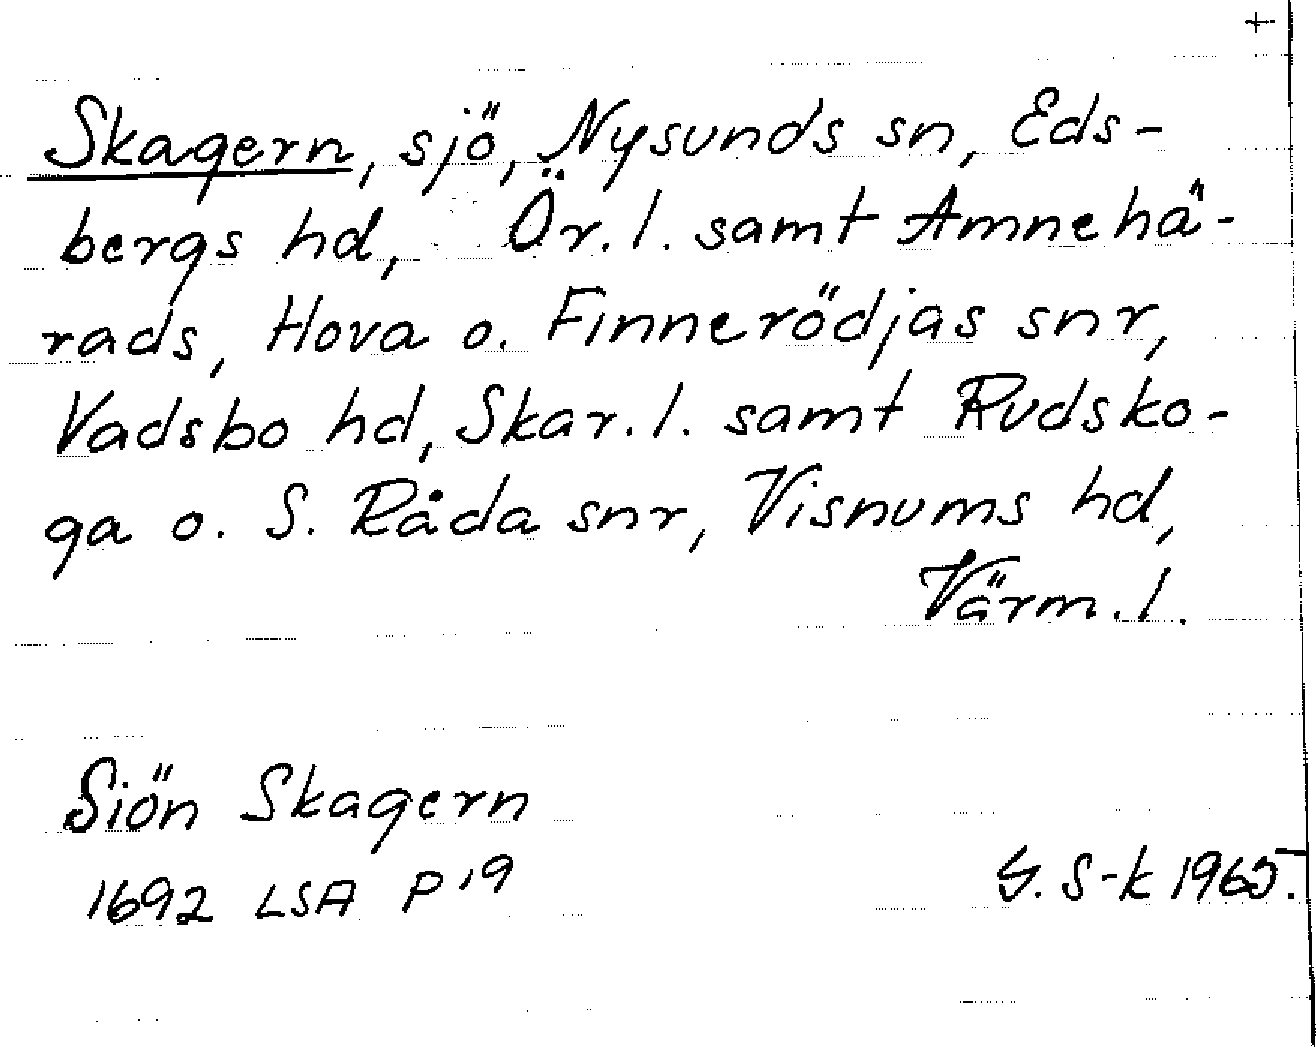 +
Skagern, sjö, Nysunds sn, Eds-
bergs hd, Ör. l. samt Amnehä-
rads, Hova o. Finnerödjas snr,
Vadsbo hd, Skar. l. samt Rudsko-
ga o. S. Råda snr, Visnums hd,
Värm. l.
Siön Skagern
1692 LSA P 19
G. S-k 1965.